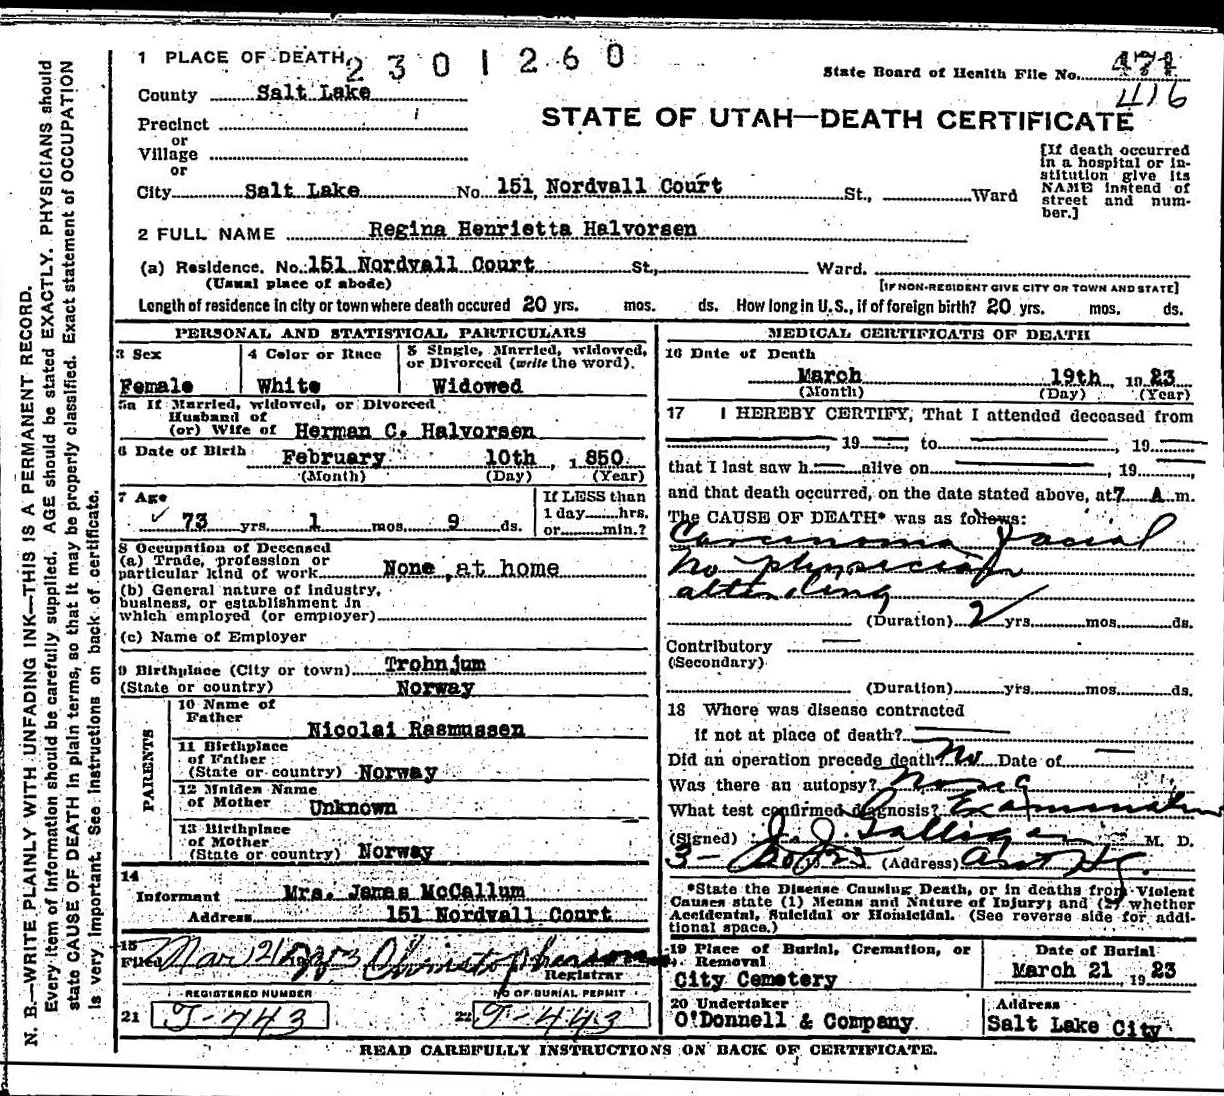 1 PLACE OF DEATH
2301260
State Board of Health File No. 471
416
County Salt Lake
STATE OF UTAH—DEATH CERTIFICATE
Precinct
or
Village
or
City Salt Lake No. 151 Nordvall Court St., Ward
[If death occurred
in a hospital or in-
stitution give its
NAME instead of
street and num-
ber.]
2 FULL NAME Regina Henrietta Halvorsen
(a) Residence. No. 151 Nordvall Court St., Ward.
(Usual place of abode)
[IF NON-RESIDENT GIVE CITY OR TOWN AND STATE]
Length of residence in city or town where death occured 20 yrs. mos. ds. How long in U.S., if of foreign birth? 20 yrs. mos. ds.
PERSONAL AND STATISTICAL PARTICULARS
3 Sex
Female
4 Color or Race
White
5 Single, Married, widowed,
or Divorced (write the word).
Widowed
5a If Married, widowed, or Divorced
Husband of
(or) Wife of Herman C. Halvorsen
6 Date of Birth February 10th, 1850
(Month) (Day) (Year)
7 Age
73 yrs. 1 mos. 9 ds.
If LESS than
1 day hrs.
or min.?
8 Occupation of Deceased
(a) Trade, profession or
particular kind of work None, at home
(b) General nature of industry,
business, or establishment in
which employed (or employer)
(c) Name of Employer
9 Birthplace (City or town) Trohnjum
(State or country) Norway
PARENTS
10 Name of
Father
Nicolai Rasmussen
11 Birthplace
of Father
(State or country) Norway
12 Maiden Name
of Mother Unknown
13 Birthplace
of Mother
(State or country) Norway
14
Informant Mrs. James McCallum
Address 151 Nordvall Court
15
Filed Mar
Registrar
REGISTERED NUMBER
21 J-743
NO OF BURIAL PERMIT
22 J-443
MEDICAL CERTIFICATE OF DEATH
16 Date of Death
March 19th, 1923
(Month) (Day) (Year)
17 I HEREBY CERTIFY, That I attended deceased from
, 19 to , 19
that I last saw h alive on , 19
and that death occurred, on the date stated above, at 7 A.m.
The CAUSE OF DEATH* was as follows:
Carcinoma facial
No physician
attending
(Duration) 2 yrs. mos. ds.
Contributory
(Secondary)
(Duration) yrs. mos. ds.
18 Where was disease contracted
if not at place of death?
Did an operation precede death? No Date of
Was there an autopsy? None
What test confirmed diagnosis? Examination
(Signed) J. J. Galligan M. D.
(Address)
*State the Disease Causing Death, or in deaths from Violent
Causes state (1) Means and Nature of Injury; and (2) whether
Accidental, Suicidal or Homicidal. (See reverse side for addi-
tional space.)
19 Place of Burial, Cremation, or
Removal
City Cemetery
Date of Burial
March 21, 1923
20 Undertaker
O'Donnell & Company
Address
Salt Lake City
READ CAREFULLY INSTRUCTIONS ON BACK OF CERTIFICATE.
N. B.—WRITE PLAINLY WITH UNFADING INK—THIS IS A PERMANENT RECORD.
Every item of information should be carefully supplied. AGE should be stated EXACTLY. PHYSICIANS should
state CAUSE OF DEATH in plain terms, so that it may be properly classified. Exact statement of OCCUPATION
is very important. See instructions on back of certificate.